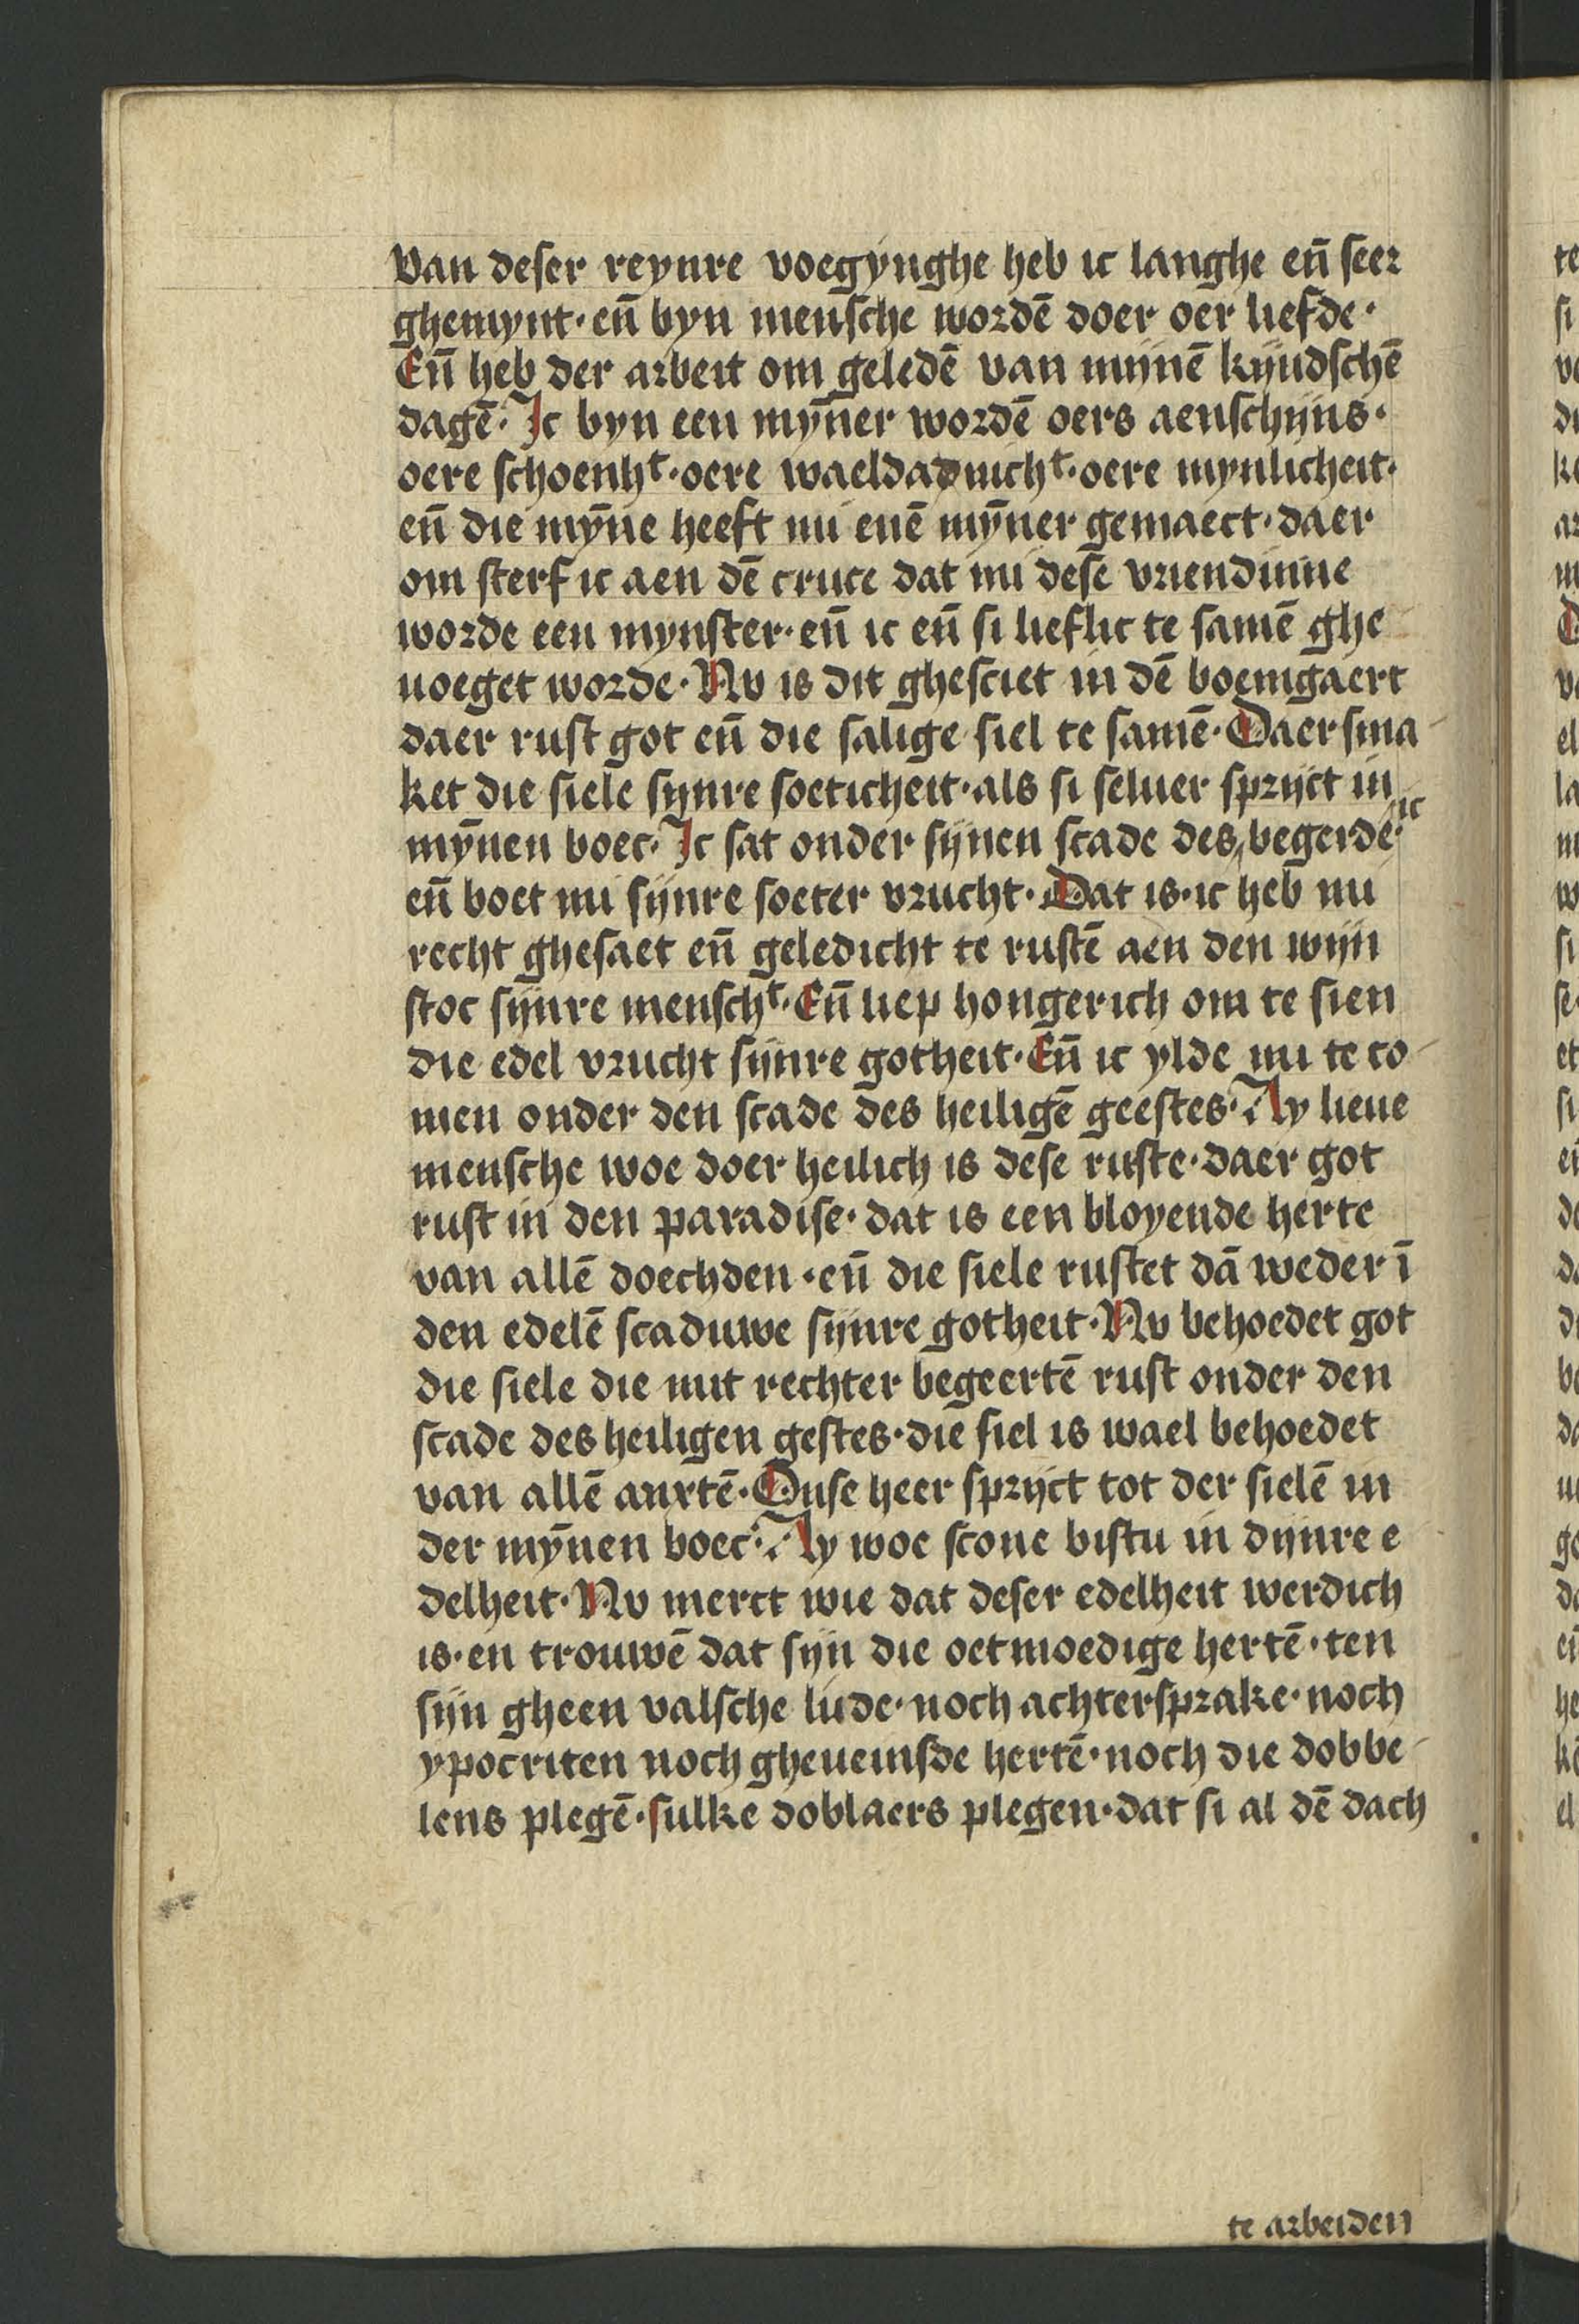 van deser reynre voegynghe heb ic langhe en̄ seer
ghemynt · en̄ byn mensche wordē doer oer liefde ·
En̄ heb der arbeit om geledē van mijnē kijndschē
dagē · Jc byn een mȳner wordē oers aenschijns ·
oere schoenhᵗ · oere waeldadnichᵗ · oere mynlicheit ·
en̄ die mȳne heeft mi enē mȳner gemaect · daer
om sterf ic aen dē cruce dat mi dese vriendinne
worde een mynster · en̄ ic en̄ si lieflic te samē ghe
uoeget worde · Nv is dit ghesciet in dē boemgaert
daer rust got en̄ die salige siel te samē · Daer sma
ket die siele synre soeticheit · als si seluer sprijct in
mȳnen boec · Jc sat onder sijnen scade des ic begerde ·
en̄ boet mi sijnre soeter vrucht · Dat is · ic heb mi
recht ghesaet en̄ geledicht te rustē aen den wijn
stoc sijnre menschᵗ · En̄ liep hongerich om te sien
die edel vrucht sijnre gotheit · En̄ ic ylde mi te co
men onder den scade des heiligē geestes · Ay lieue
mensche woe doer heilich is dese ruste · daer got
rust in den paradise · dat is een bloyende herte
van allē doechden · en̄ die siele rustet dā weder ī
den edelē scaduwe sijnre gotheit · Nv behoedet got
die siele die mit rechter begeertē rust onder den
scade des heiligen gestes · die siel is wael behoedet
van allē anxtē · Onse heer sprijct tot der sielē in
der mȳnen boec · Ay woe scone bistu in dijnre e
delheit · Nv merct wie dat deser edelheit werdich
is · en trouwē dat sijn die oetmoedige hertē · ten
sijn gheen valsche lude · noch achtersprake · noch
ypocriten noch gheueinsde hertē · noch die dobbe
lens plegē · sulke doblaers plegen · dat si al dē dach
te arbeiden